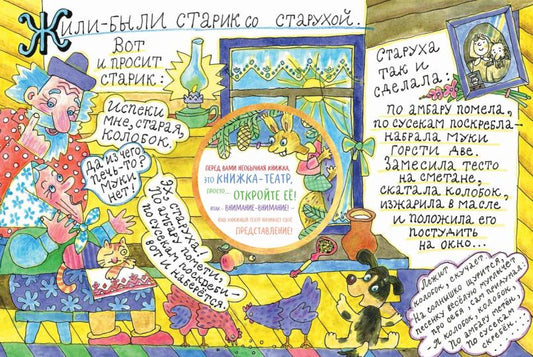 Жили-были старик со старухой.
Вот
и просит
старик:
Испеки
мне, старая,
колобок.
Да из чего
печь-то?
Муки
нет!
Эх, старуха!
По амбару помети,
по сусекам поскреби —
вот и наберётся.
Перед вами необычная книжка,
это книжка-театр,
просто... откройте её!
Итак - внимание-внимание! -
наш книжный театр начинает своё
представление!
Старуха
так и
сделала:
по амбару помела,
по сусекам поскребла —
набрала муки
горсти две.
Замесила тесто
на сметане,
скатала колобок,
изжарила в масле
и положила его
постудить
на окно...
Лежит
колобок, скучает.
На солнышко щурится,
песенку весёлую мурлычет
про себя, сам придумал:
Я колобок, колобок,
По амбару метён,
по сусекам
скребён...